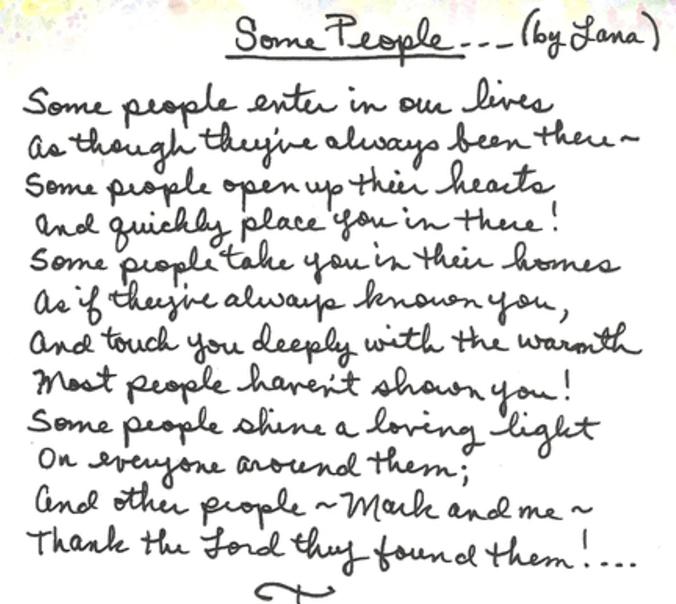 Some People --- (by Lana)
Some people enter in our lives
As though they've always been there~
Some people open up their hearts
And quickly place you in there!
Some people take you in their homes
As if they've always known you,
And touch you deeply with the warmth
Most people haven't shown you!
Some people shine a loving light
On everyone around them;
And other people ~ Mark and me ~
Thank the Lord they found them!....